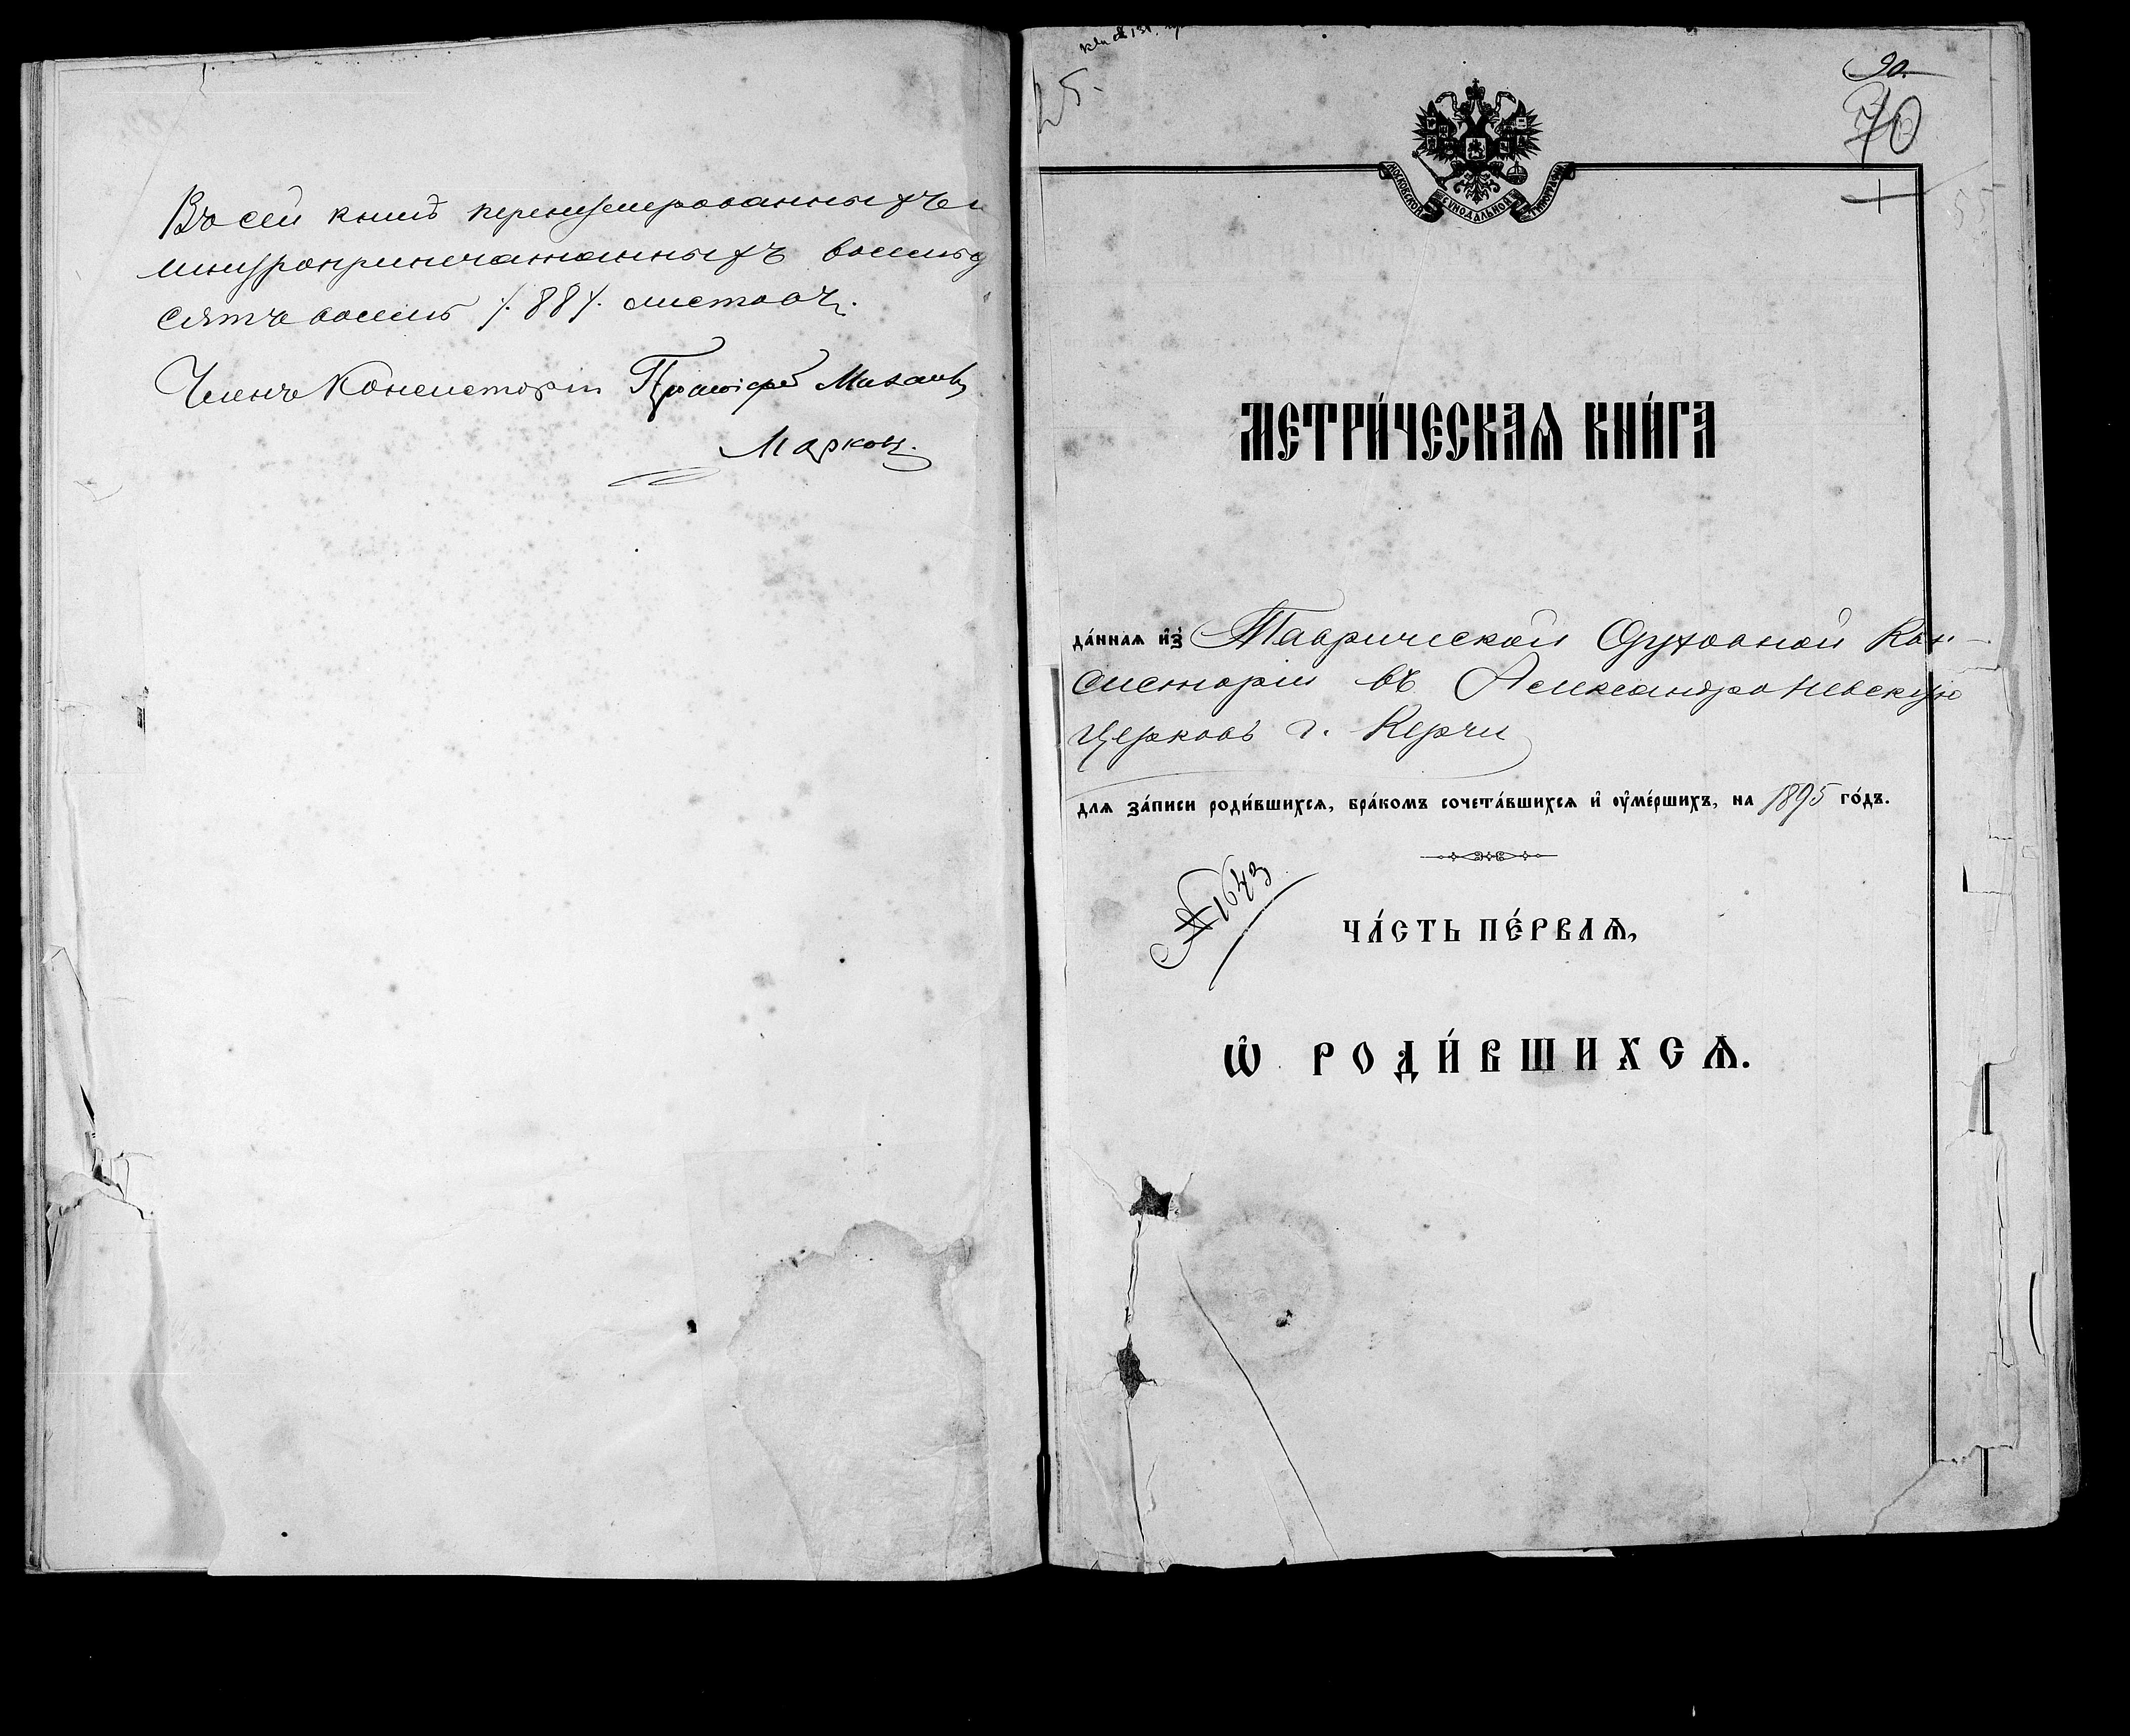 Въ сей книгѣ перенумерованныхъ и
шнуроприпечатанныхъ восемьд
сятъ восемь /.88/. листовъ.
Членъ Консисторіи Протоіерей Михаилъ
Марковъ.
25.
90.
70
1
МОСКОВСКОЙ СѴНОДАЛЬНОЙ ТИПОГРАФІИ
МЕТРИ́ЧЕСКАѦ КНИ́ГА
да́ннаѧ и҆з̾ Таврической Духовной Кон-
систоріи въ Александро Невскую
церковь г. Керчи
для за́писи роди́вшихсѧ, бра́комъ сочета́вшихсѧ и҆ оу҆ме́ршихъ, на 1895 го́дъ.
№ 1643
ЧА́СТЬ ПЕ́РВАѦ,
Ѡ҆ РОДИ́ВШИХСѦ.